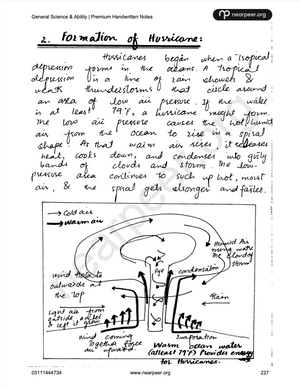 General Science & Ability | Premium Handwritten Notes
nearpeer.org
2. Formation of Hurricane:
Hurricanes began when a tropical
depression forms in the oceans. A tropical
depression is a line of rain showers &
weak thunderstorms that circle around
an area of low air pressure. If the water
is at least 79°F, a hurricane might form.
The low air pressure causes the hot, humid
air from the ocean to rise in a spiral
shape. As that warm air rises, it releases
heat, cools down, and condenses into
bands of clouds and storm. The low-
pressure area continues to suck up hot, moist
air, & the spiral gets stronger and faster.
→ Cold air
→ Warm air
Humid Air
rising make
the clouds of
storm
Eye
condensation
wind
outwards at
the top
Light air from
outside
& left it grow
Rain
wind coming
together force
air upward.
Evaporation
Warm ocean water
(atleast 79°F) Provides energy
for Hurricanes.
nearpeer.org
03111444734
www.nearpeer.org
227